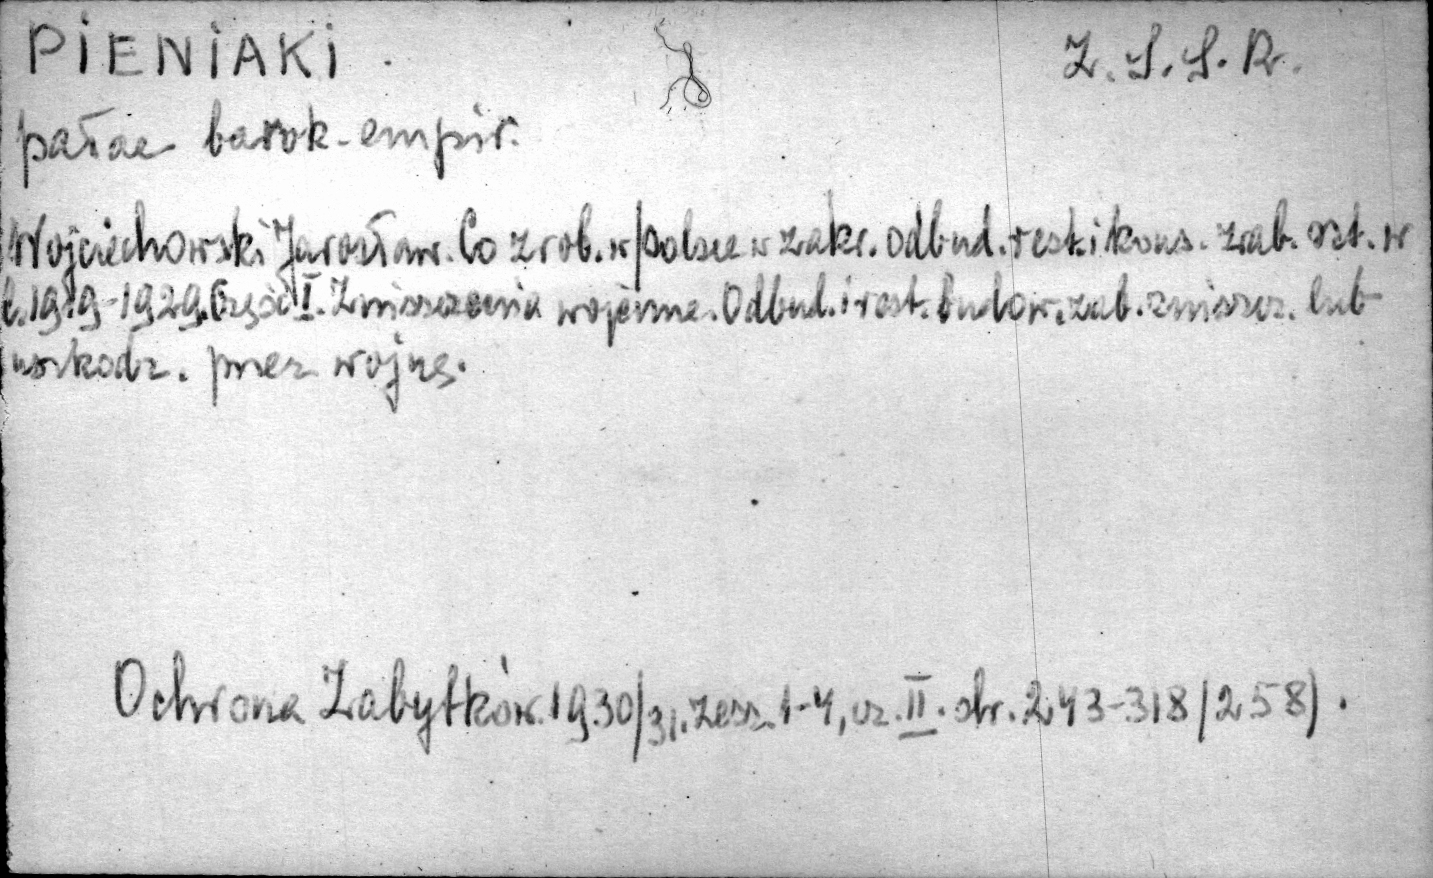 PIENIAKI. Z.S.S.R.
pałac barok-empir.
Wojciechowski Jarosław. Co zrob. w Polsce w zakr. odbud. rest. i kons. zab. szt. w
l. 1919-1929. Część I. Zniszczenia wojenne. Odbud. i rest. budow. zab. zniszcz. lub
uszkodz. przez wojnę.
Ochrona Zabytków. 1930/31. zesz. 1-4, cz. II. str. 243-318 (258).